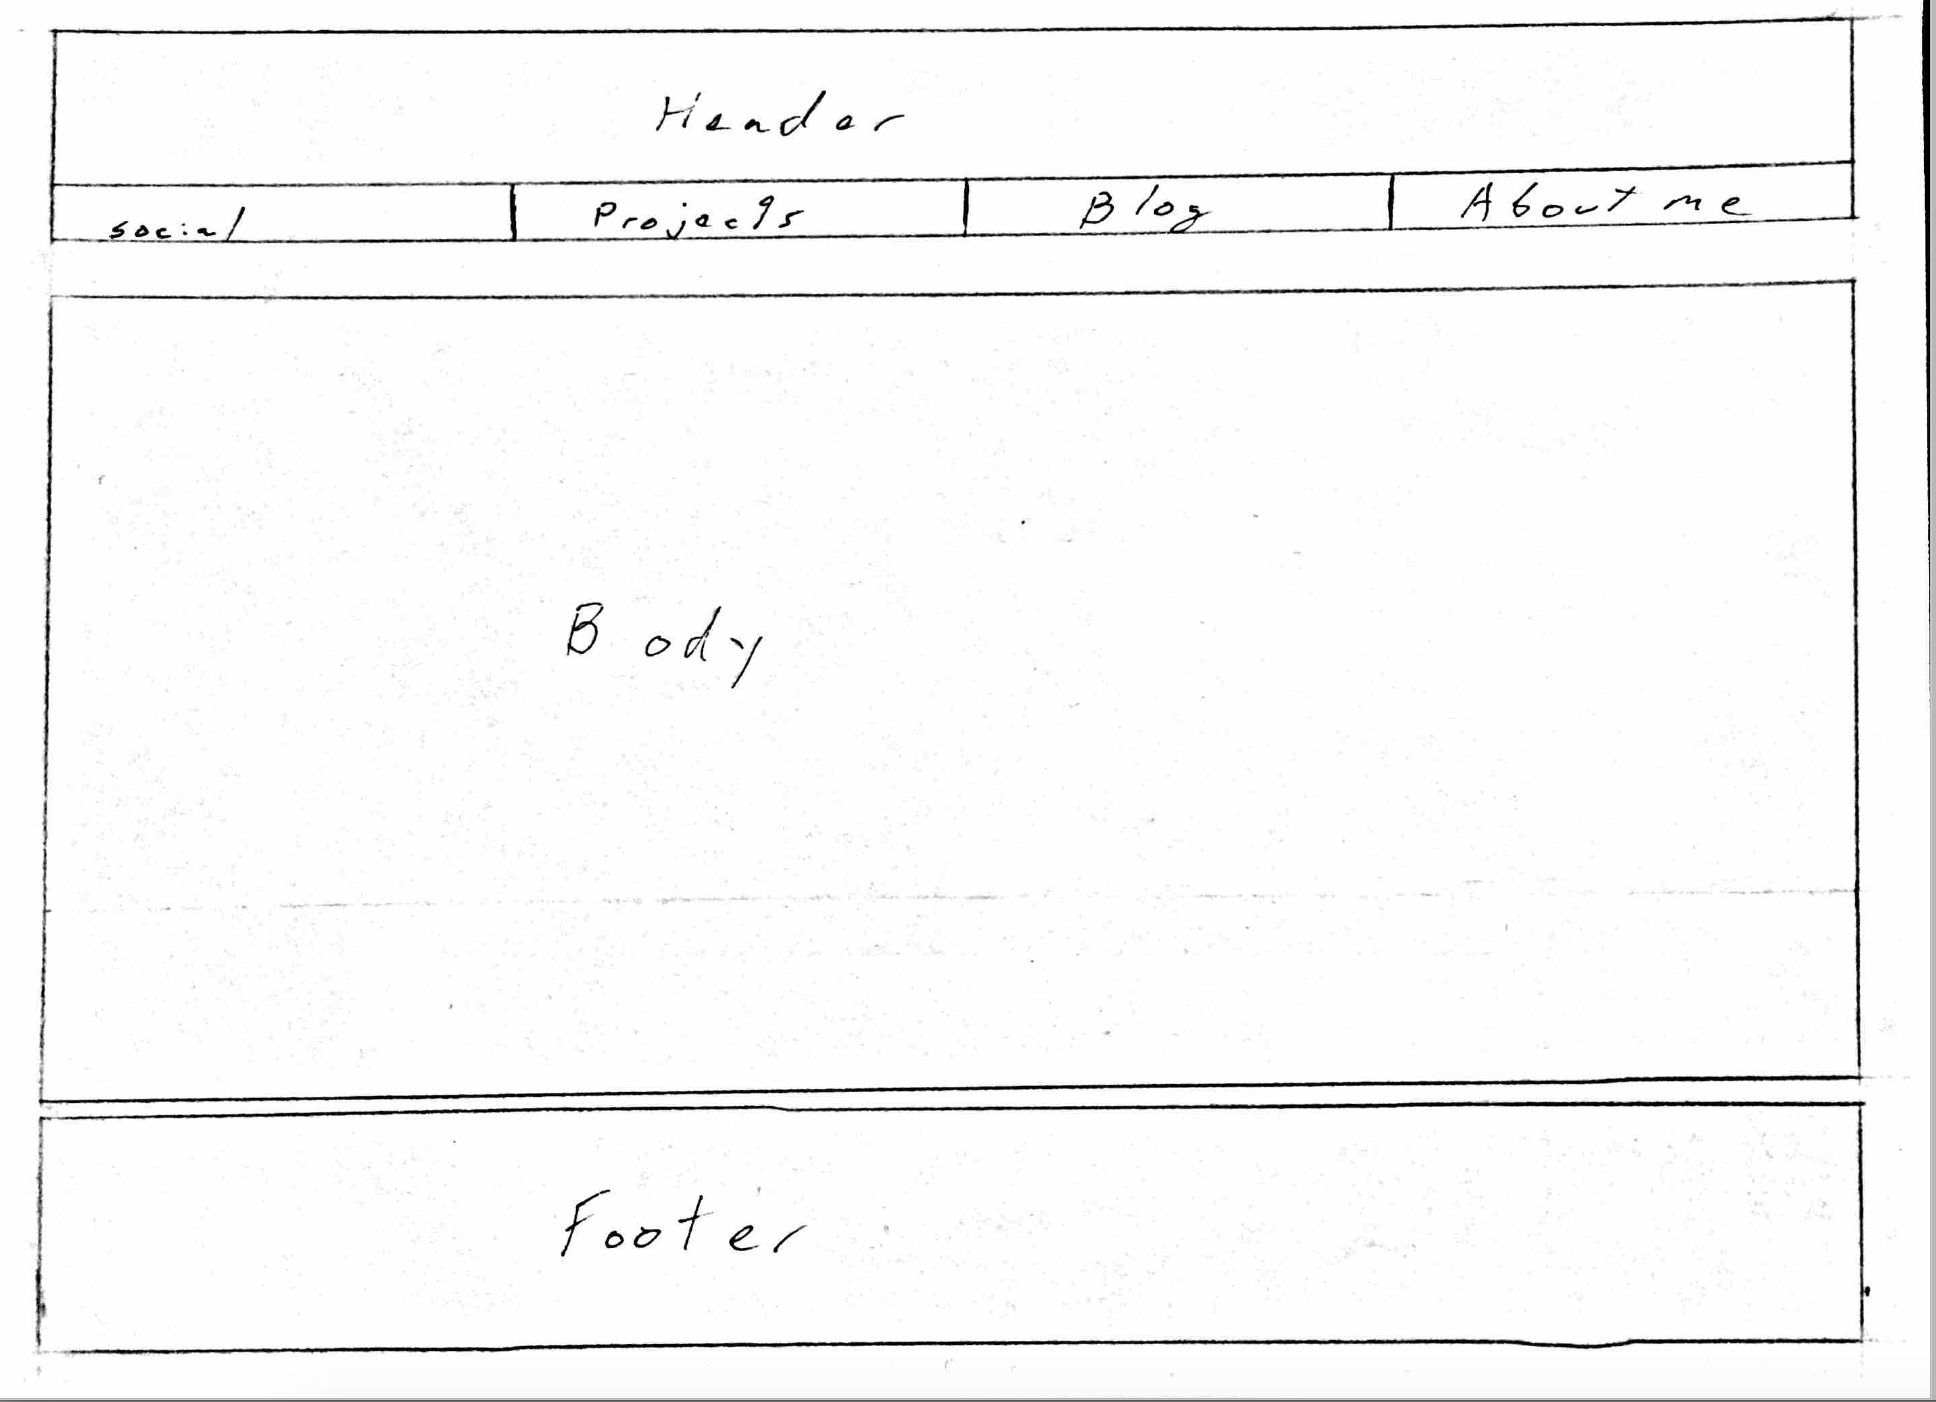 Header
social Projects Blog About me
Body
Footer